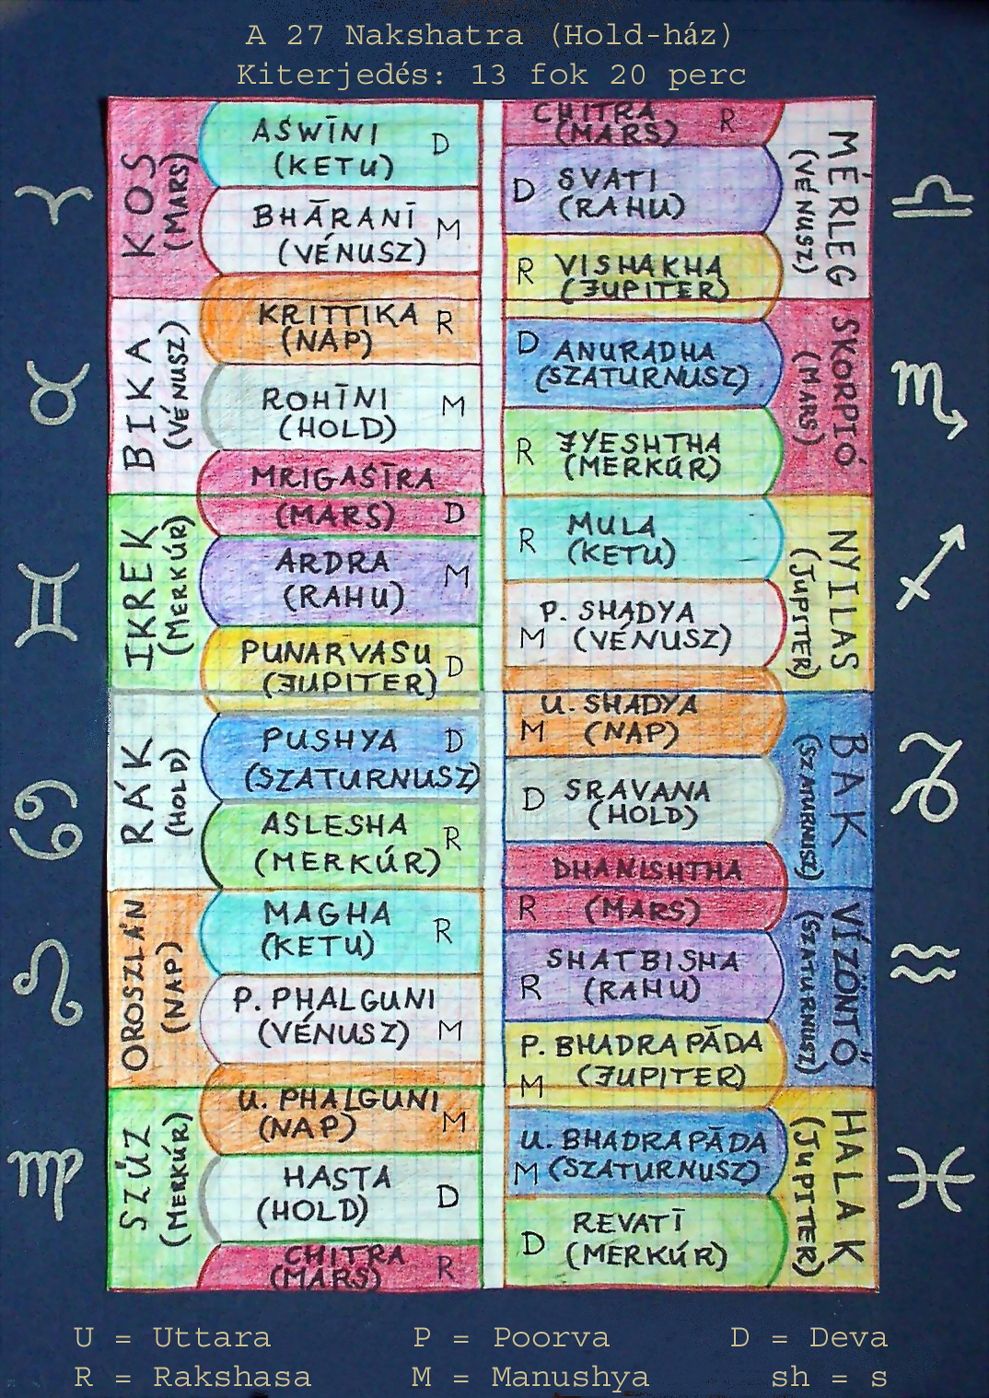 A 27 Nakshatra (Hold-ház)
Kiterjedés: 13 fok 20 perc
KOS
(MARS)
AŚWĪNI D
(KETU)
BHĀRANĪ M
(VÉNUSZ)
KRITTIKA R
(NAP)
BIKA
(VÉNUSZ)
ROHĪNI M
(HOLD)
MRIGAŚĪRA
(MARS) D
IKREK
(MERKÚR)
ARDRA M
(RAHU)
PUNARVASU D
(JUPITER)
RÁK
(HOLD)
PUSHYA D
(SZATURNUSZ)
ASLESHA R
(MERKÚR)
OROSZLÁN
(NAP)
MAGHA R
(KETU)
P. PHALGUNI
(VÉNUSZ) M
U. PHALGUNI
(NAP) M
SZŰZ
(MERKÚR)
HASTA D
(HOLD)
CHITRA R
(MARS)
CHITRA R
(MARS)
MÉRLEG
(VÉNUSZ)
D SVATI
(RAHU)
R VISHAKHA
(JUPITER)
SKORPIÓ
(MARS)
D ANURADHA
(SZATURNUSZ)
R JYESHTHA
(MERKÚR)
NYILAS
(JUPITER)
R MULA
(KETU)
P. SHADYA
M (VÉNUSZ)
U. SHADYA
M (NAP)
BAK
(SZATURNUSZ)
D SRAVANA
(HOLD)
DHANISHTHA
R (MARS)
VÍZÖNTŐ
(SZATURNUSZ)
SHATBISHA
R (RAHU)
P. BHADRAPĀDA
M (JUPITER)
HALAK
(JUPITER)
U. BHADRAPĀDA
M (SZATURNUSZ)
REVATĪ
D (MERKÚR)
U = Uttara P = Poorva D = Deva
R = Rakshasa M = Manushya sh = s